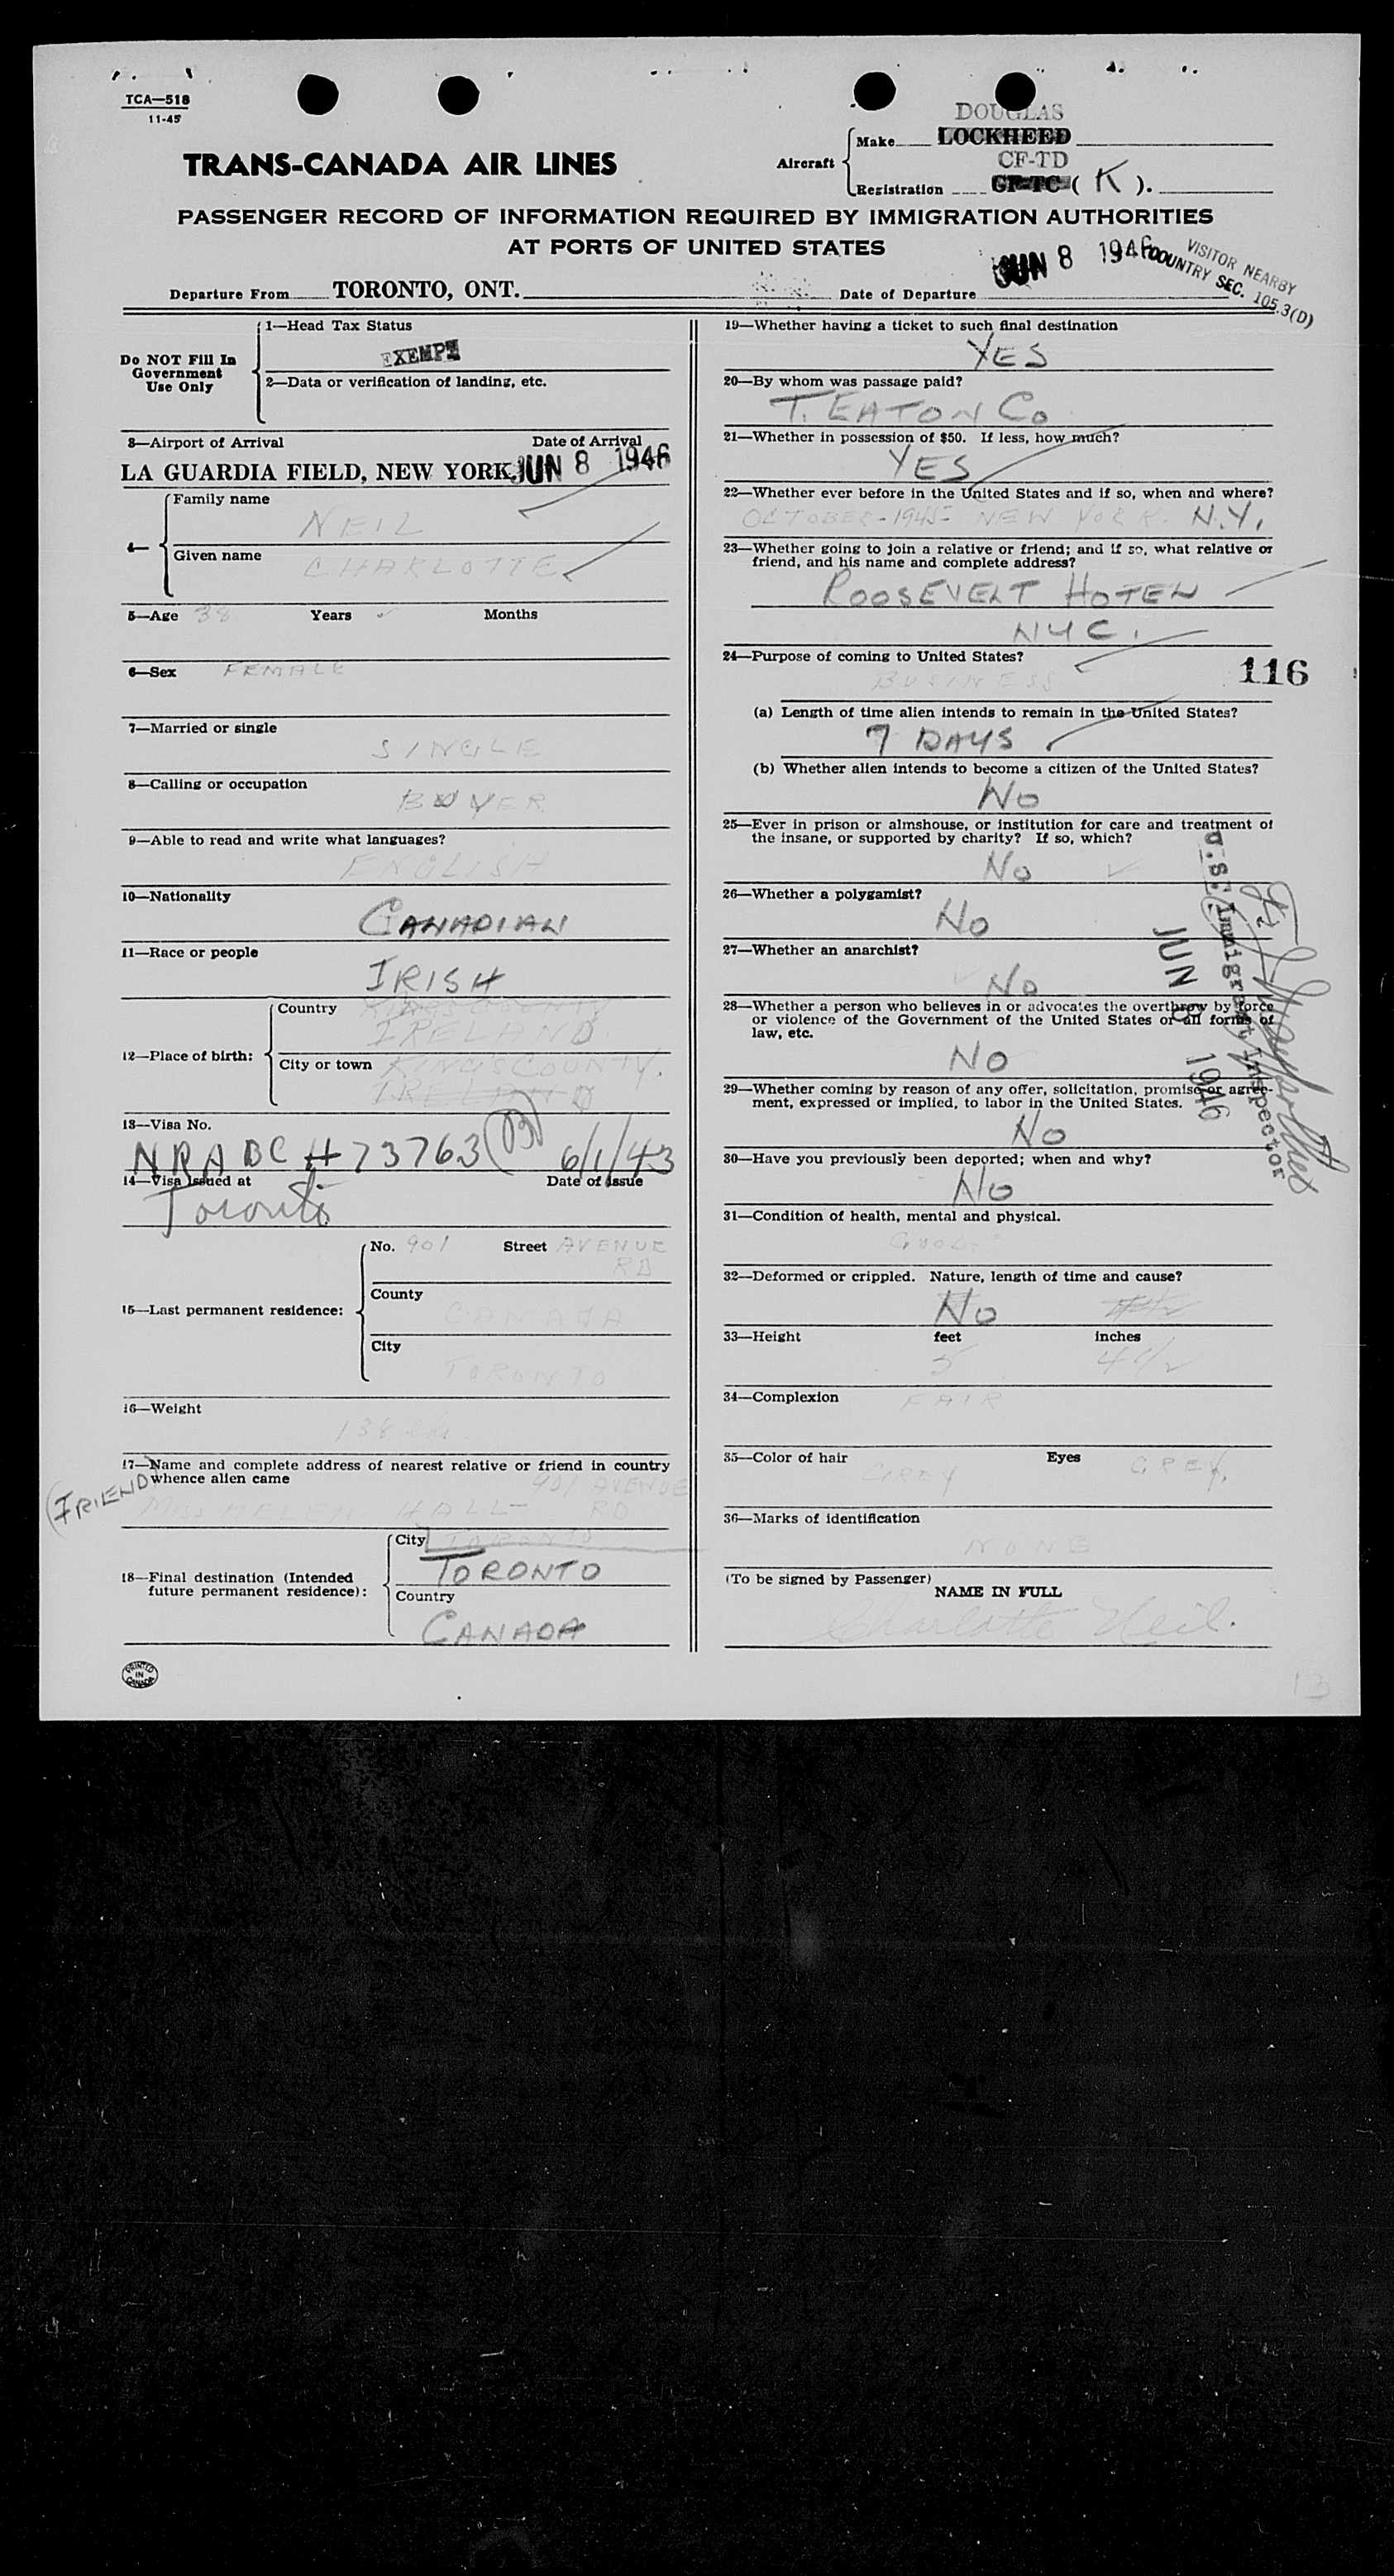 TCA—518
11-45
TRANS-CANADA AIR LINES
DOUGLAS
Aircraft
Make LOCKHEED
CF-TD
Registration CF-TC ( K ).
PASSENGER RECORD OF INFORMATION REQUIRED BY IMMIGRATION AUTHORITIES
AT PORTS OF UNITED STATES
Departure From TORONTO, ONT.
Date of Departure JUN 8 1946
VISITOR NEARBY
COUNTRY SEC. 105.3(D)
Do NOT Fill In
Government
Use Only
1—Head Tax Status
EXEMPT
2—Data or verification of landing, etc.
3—Airport of Arrival Date of Arrival
LA GUARDIA FIELD, NEW YORK, JUN 8 1946
4—
Family name
NEIL
Given name
CHARLOTTE
5—Age 38 Years Months
6—Sex FEMALE
7—Married or single
SINGLE
8—Calling or occupation
BUYER
9—Able to read and write what languages?
ENGLISH
10—Nationality
CANADIAN
11—Race or people
IRISH
12—Place of birth:
Country
IRELAND
City or town KING'S COUNTY.
IRELAND
13—Visa No.
NRABC # 73763 (B) 6/1/43
14—Visa Issued at Date of Issue
Toronto
15—Last permanent residence:
No. 901 Street AVENUE
RD
County
CANADA
City
TORONTO
16—Weight
138
17—Name and complete address of nearest relative or friend in country
whence alien came
901 AVENUE
(FRIEND) MISS HELEN HALL— RD
18—Final destination (Intended
future permanent residence):
City TORONTO
TORONTO
Country
CANADA
PRINTED
IN
CANADA
19—Whether having a ticket to such final destination
YES
20—By whom was passage paid?
T. EATON Co
21—Whether in possession of $50. If less, how much?
YES
22—Whether ever before in the United States and if so, when and where?
OCTOBER-1945- NEW YORK. N.Y.
23—Whether going to join a relative or friend; and if so, what relative or
friend, and his name and complete address?
ROOSEVELT HOTEL
NYC.
24—Purpose of coming to United States?
BUSINESS
116
(a) Length of time alien intends to remain in the United States?
7 DAYS
(b) Whether alien intends to become a citizen of the United States?
No
25—Ever in prison or almshouse, or institution for care and treatment of
the insane, or supported by charity? If so, which?
No
26—Whether a polygamist?
No
27—Whether an anarchist?
No
28—Whether a person who believes in or advocates the overthrow by force
or violence of the Government of the United States or all forms of
law, etc.
No
29—Whether coming by reason of any offer, solicitation, promise or agree-
ment, expressed or implied, to labor in the United States.
No
30—Have you previously been deported; when and why?
No
31—Condition of health, mental and physical.
GOOD
32—Deformed or crippled. Nature, length of time and cause?
No
33—Height feet inches
5 4 1/2
34—Complexion
FAIR
35—Color of hair Eyes
GREY GREY.
36—Marks of identification
NONE
(To be signed by Passenger)
NAME IN FULL
Charlotte Neil.
U.S. Immigrant Inspector
JUN 8 1946
13